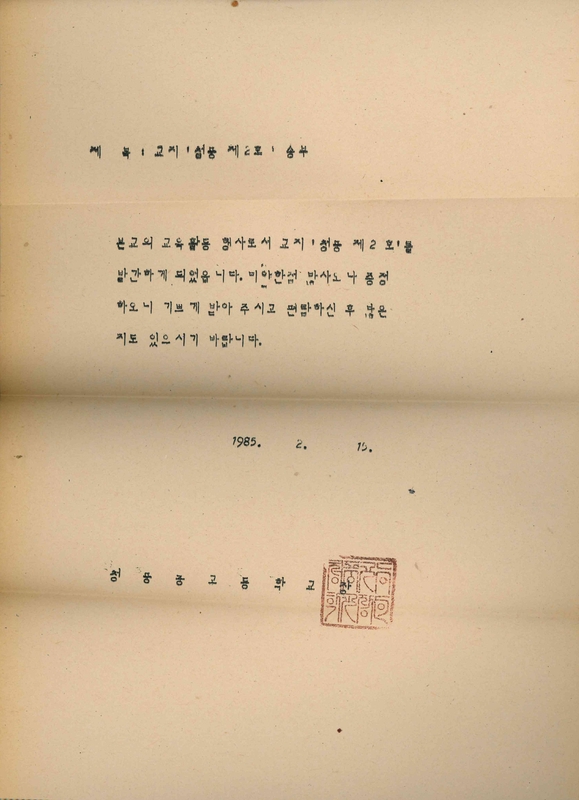 제 목 : 교지 '청농 제2호' 송부
본교의 교육활동 행사로서 교지 '청농 제2호'를
발간하게 되었읍니다. 미약한점 많사오나 증정
하오니 기쁘게 받아 주시고 편람하신 후 많은
지도 있으시기 바랍니다.
1985. 2. 15.
고 등 학 교 장